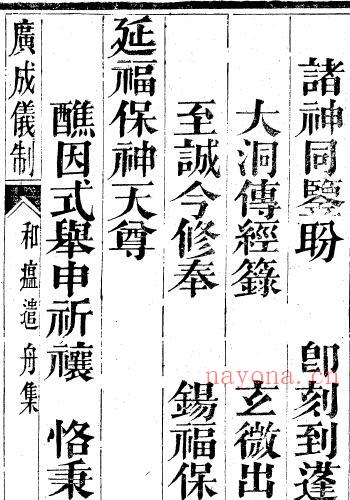 諸神同鑒盼　即刻到蓬
大洞傳經錄　玄微出
至誠今修奉　錫福保
延福保神天尊
醮因式舉申祈禳　恪秉
廣成儀制　和瘟遣舟集
nayona.cn